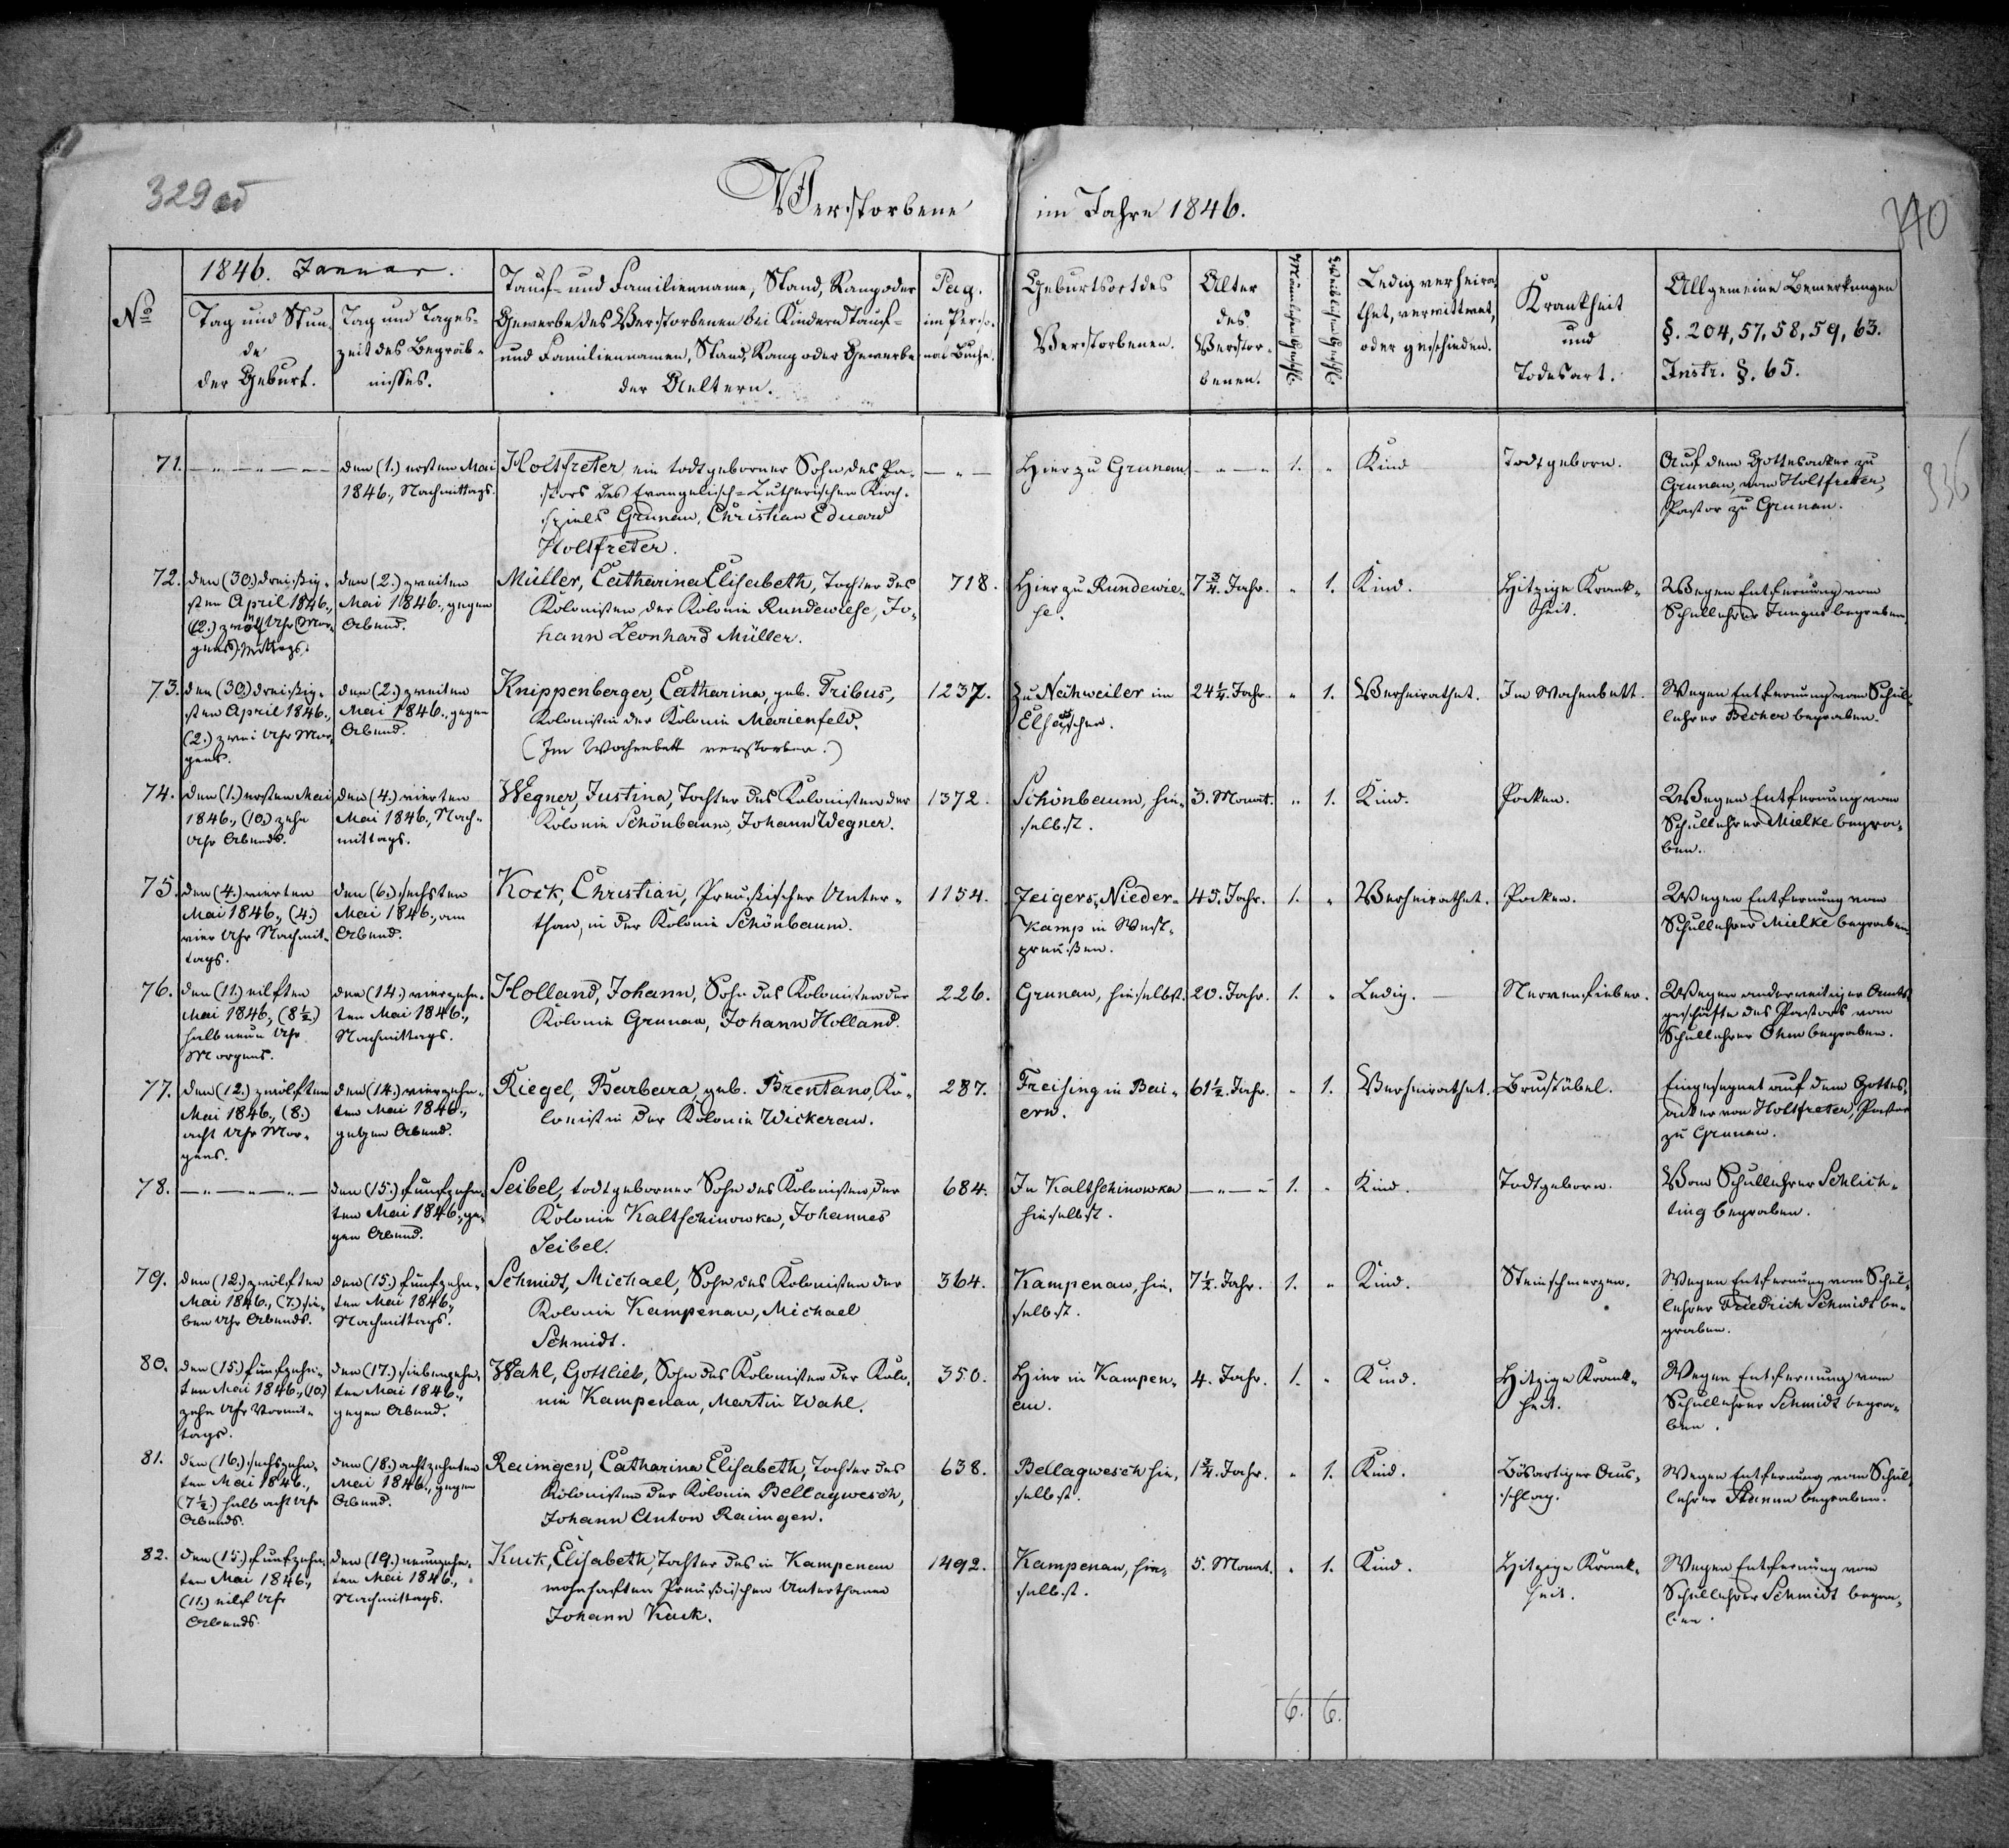 329
Verstorbene
im Jahre 1846.
340
336
No
1846. Januar.
Tag und Stun
de
der Geburt.
Tag und Tages-
zeit des Begräb-
nisses.
Tauf- und Familienname, Stand, Rang oder
Gewerbe des Verstorbenen bei Kindern Tauf-
und Familiennamen, Stand, Rang oder Gewerbe
der Aeltern.
Pag.
im Perso-
nal Buche.
Geburtsort des
Verstorbenen.
Alter
des
Verstor-
benen.
Männlichen Geschl.
Weiblichen Geschl.
Ledig verheira-
thet, verwittwet,
oder geschieden.
Krankheit
und
Todesart.
Allgemeine Bemerkungen
§. 204, 57, 58, 59, 63.
Instr. §. 65.
71.
— " — " — —
den (1.) ersten Mai
1846., Nachmittags.
Holtfreter, ein todtgeborner Sohn des Pa-
stors des Evangelisch-Lutherischen Kirch-
spiels Grunau, Christian Eduard
Holtfreter.
— " —
Hier zu Grunau
— " — "
1.
"
Kind
Todtgeborn.
Auf dem Gottesacker zu
Grunau, vom Holtfreter,
Pastor zu Grunau.
72.
den (30.) dreißig-
sten April 1846.,
(12.) zwölf Uhr (Mor-
gens) Mittags.
den (2.) zweiten
Mai 1846., gegen
Abend.
Müller, Catharina Elisabeth, Tochter des
Kolonisten der Kolonie Rundewiese, Jo-
hann Leonhard Müller.
718.
Hier zu Rundewie-
se.
7 3/4. Jahr.
"
1.
Kind.
Hitzige Krank-
heit.
Wegen Entfernung vom
Schullehrer Jungus begraben.
73.
den (30.) dreißig-
sten April 1846.,
(2.) zwei Uhr Mor-
gens.
den (2.) zweiten
Mai 1846., gegen
Abend.
Knippenberger, Catharina, geb. Tribus,
Kolonistin der Kolonie Marienfeld.
(Im Wochenbett verstorben.)
1237.
Zu Nehweiler im
Elsaßschen.
24 1/4. Jahr.
"
1.
Verheirathet.
Im Wochenbett.
Wegen Entfernung vom Schul-
lehrer Becher begraben.
74.
den (1.) ersten Mai
1846., (10.) zehn
Uhr Abends.
den (4.) vierten
Mai 1846., Nach-
mittags.
Wegner, Justina, Tochter des Kolonisten der
Kolonie Schönbaum, Johann Wegner.
1372.
Schönbaum, hie-
selbst.
3. Monat.
"
1.
Kind.
Pocken.
Wegen Entfernung vom
Schullehrer Mielke begra-
ben.
75.
den (4.) vierten
Mai 1846., (4.)
vier Uhr Nachmit-
tags.
den (6.) sechsten
Mai 1846., am
Abend.
Kock, Christian, Preußischer Unter-
than, in der Kolonie Schönbaum.
1154.
Zeigers-Nieder-
Kamp in West-
preußen.
45. Jahr.
1.
"
Verheirathet.
Pocken.
Wegen Entfernung vom
Schullehrer Mielke begraben.
76.
den (11.) eilften
Mai 1846., (8 1/2.)
halb neun Uhr
Morgens.
den (14.) vierzehn-
ten Mai 1846.,
Nachmittags.
Holland, Johann, Sohn des Kolonisten der
Kolonie Grunau, Johann Holland.
226.
Grunau, hieselbst.
20. Jahr.
1.
"
Ledig.
Nervenfieber.
Wegen anderweitiger Amts-
geschäfte des Pastors vom
Schullehrer Ohm begraben.
77.
den (12.) zwölften
Mai 1846., (8.)
acht Uhr Mor-
gens.
den (14.) vierzehn-
ten Mai 1846.,
gegen Abend.
Riegel, Barbara, geb. Brentano, Ko-
lonistin der Kolonie Wickerau.
287.
Freising in Bai-
ern.
61 1/2. Jahr.
"
1.
Verheirathet.
Brustübel.
Eingesegnet auf dem Gottes-
acker von Holtfreter, Pastor
zu Grunau.
78.
— " — " — " —
den (15.) funfzehn-
ten Mai 1846., ge-
gen Abend.
Seibel, todtgeborner Sohn des Kolonisten der
Kolonie Kaltschinowka, Johannes
Seibel.
684.
In Kaltschinowka
hieselbst.
— " — "
1.
"
Kind.
Todtgeborn.
Vom Schullehrer Schlich-
ting begraben.
79.
den (12.) zwölften
Mai 1846., (7.) sie-
ben Uhr Abends.
den (15.) funfzehn-
ten Mai 1846.,
Nachmittags.
Schmidt, Michael, Sohn des Kolonisten der
Kolonie Kampenau, Michael
Schmidt.
364.
Kampenau, hie-
selbst.
7 1/2. Jahr.
1.
"
Kind.
Steinschmerzen.
Wegen Entfernung vom Schul-
lehrer Friedrich Schmidt be-
graben.
80.
den (15.) funfzehn-
ten Mai 1846., (10.)
zehn Uhr Vormit-
tags.
den (17.) siebenzehn-
ten Mai 1846.,
gegen Abend.
Wahl, Gottlieb, Sohn des Kolonisten der Kolo-
nie Kampenau, Martin Wahl.
350.
Hier in Kampen-
au.
4. Jahr.
1.
"
Kind.
Hitzige Krank-
heit.
Wegen Entfernung vom
Schullehrer Schmidt begra-
ben.
81.
den (16.) sechszehn-
ten Mai 1846.,
(7 1/2.) halb acht Uhr
Abends.
den (18.) achtzehnten
Mai 1846., gegen
Abend.
Raimgen, Catharina Elisabeth, Tochter des
Kolonisten der Kolonie Bellagwesch,
Johann Anton Raimgen.
638.
Bellagwesch hie-
selbst.
1 3/4. Jahr.
"
1.
Kind.
Bösartiger Aus-
schlag.
Wegen Entfernung vom Schul-
lehrer Stumm begraben.
82.
den (15.) funfzehn-
ten Mai 1846.,
(11.) eilf Uhr
Abends.
den (19.) neunzehn-
ten Mai 1846.,
Nachmittags.
Kuck, Elisabeth, Tochter des in Kampenau
wohnhaften Preußischen Unterthanen
Johann Kuck.
1492.
Kampenau, hie-
selbst.
5. Monat.
"
1.
Kind.
Hitzige Krank-
heit.
Wegen Entfernung vom
Schullehrer Schmidt begra-
ben.
6.
6.